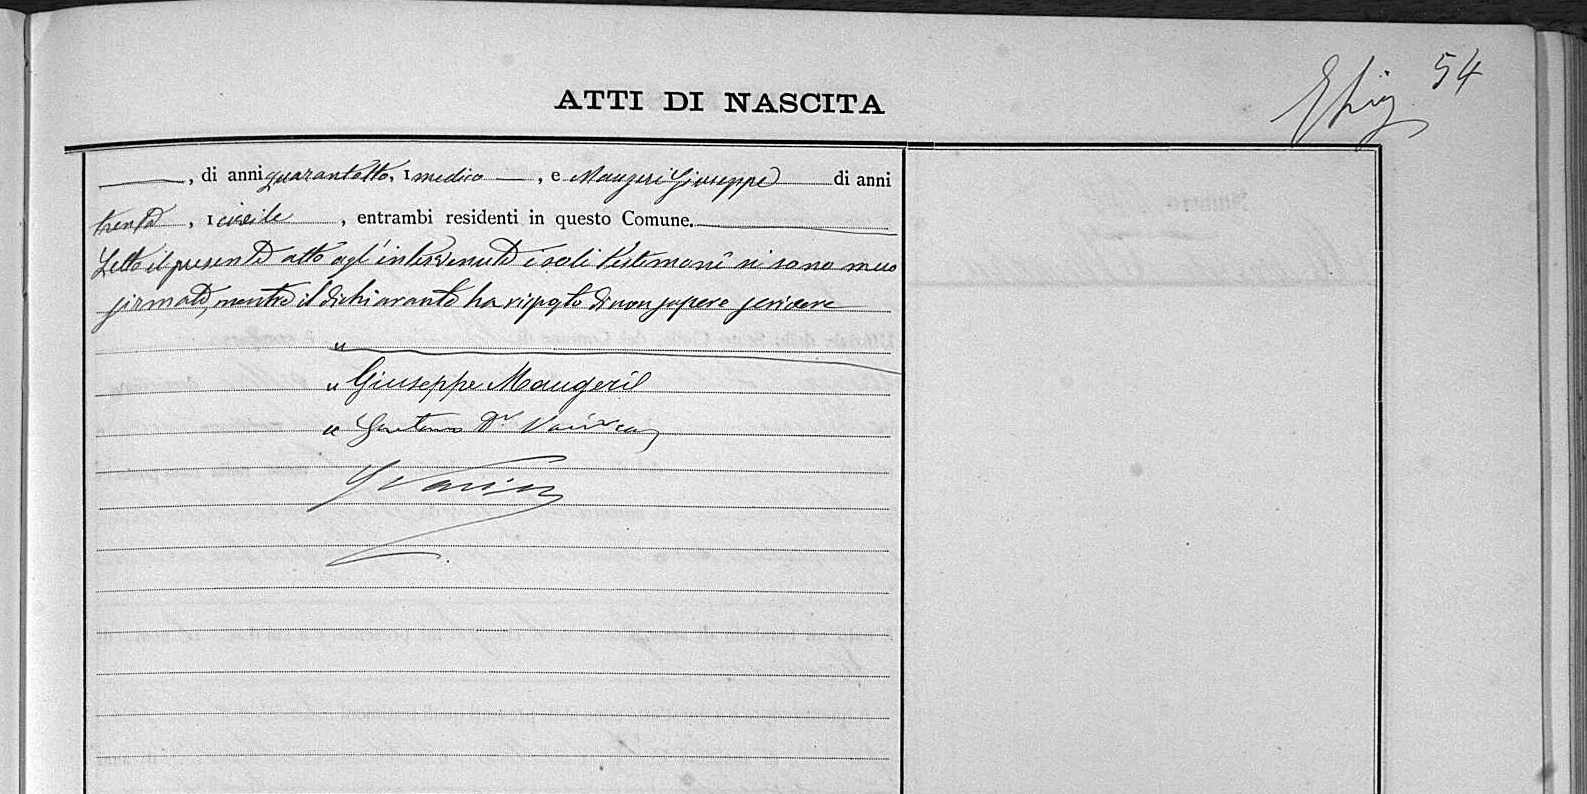 54
ATTI DI NASCITA
, di anni quarantotto, I medico, e Maugeri Giuseppe di anni
trenta, I civile, entrambi residenti in questo Comune.
Letto il presente atto agl'intervenuti i soli testimoni si sono meco
firmati, mentre il dichiarante ha risposto di non sapere scrivere
" Giuseppe Maugeri
" Gaetano Dr